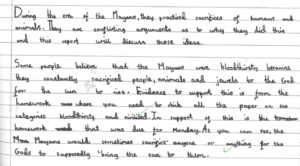 During the era of the Mayans, they practised sacrifices of humans and
animals. They are conflicting arguments as to why they did this
and this report will discuss these ideas.
Some people believe that the Mayans were bloodthirsty because
they constantly sacrificed people, animals and jewels to the God
for the sun to rise. Evidence to support this is from the
homework where you need to think all the paper on the
categories bloodthirsty and civilised. In support of this is the
homework that was due for Monday. As you can see, the
Mayans would sometimes sacrifice anyone or anything for the
Gods to supposedly bring the sun to them.